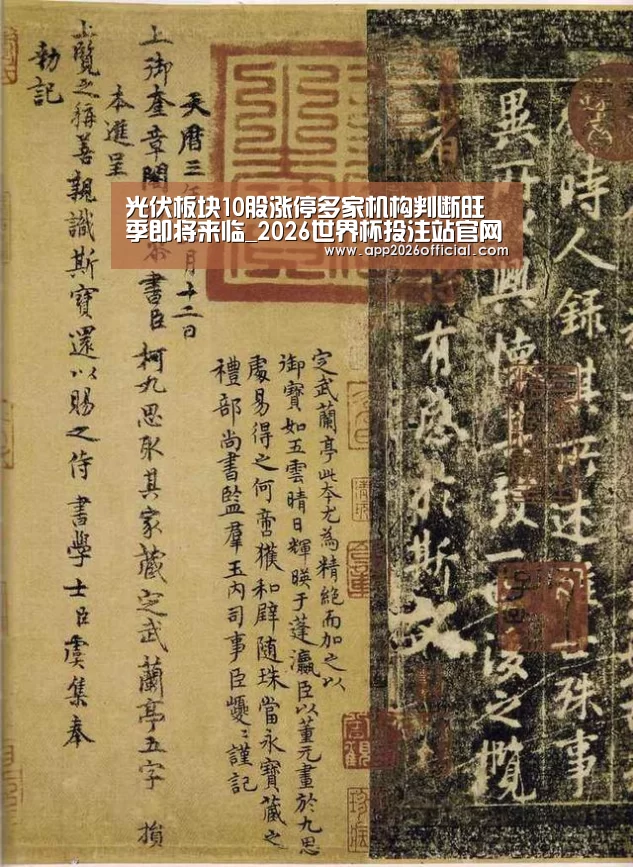 光伏板块10股涨停多家机构判断旺
季即将来临_2026世界杯投注站官网
www.app2026official.com
時人録其所述雖世殊事
異所以興懷其致一也後之攬
者
有感於斯文
定武蘭亭此本尤為精絕而加之以
御寶如五雲晴日輝暎于蓬瀛臣以董元畫於九思
處易得之何啻獲和璧随珠當永寶藏之
禮部尚書監羣玉內司事臣巙〻謹記
天曆三年月十二日
上御奎章閣書臣柯九思取其家藏定武蘭亭五字損
本進呈
上覽之稱善親識斯寶還以賜之侍書學士臣虞集奉
勅記